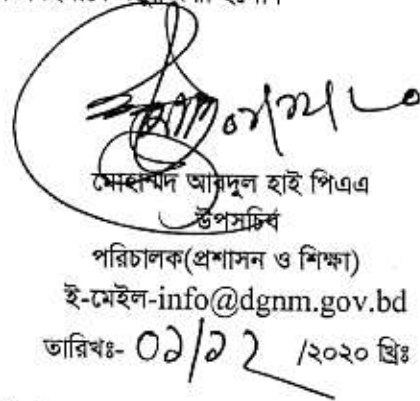 মোহাম্মদ আবদুল হাই পিএএ
উপসচিব
পরিচালক(প্রশাসন ও শিক্ষা)
ই-মেইল-info@dgnm.gov.bd
তারিখঃ- ০১/১২ /২০২০ খ্রিঃ